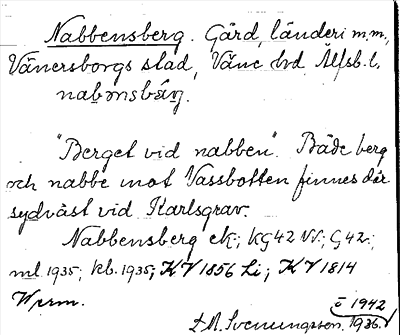 Nabbensberg. Gård, länderi m.m.,
Vänersborgs stad, Väne hd. Älfsb. l.
nabənsbärj.
"Berget vid nabben". Både berg
och nabbe mot Vassbotten finnes där
sydväst vid Karlsgrav.
Nabbensberg ek; KG42 VV; G42;
ml 1935; kb. 1935; KV 1856 Li; KV 1814
Wprm.
i 1942
D.A. Svenungsson. 1936.